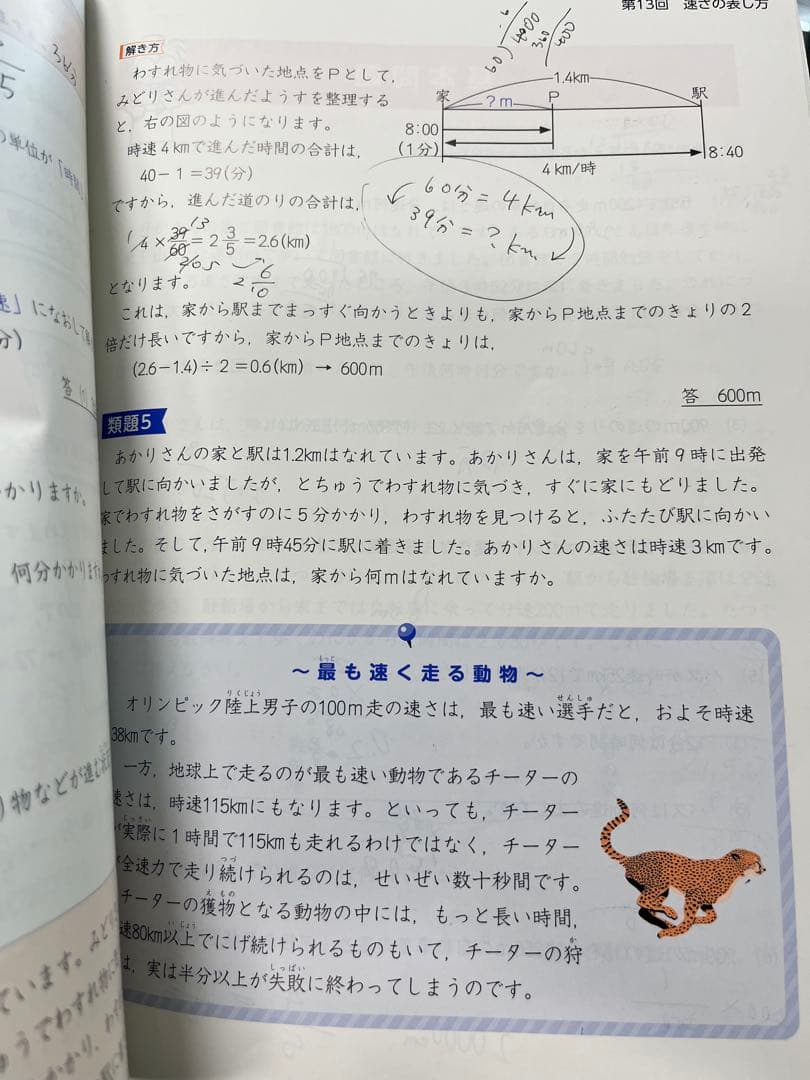 第13回 速さの表し方
解き方
わすれ物に気づいた地点をPとして，
みどりさんが進んだようすを整理する
と，右の図のようになります。
時速4kmで進んだ時間の合計は，
40－1＝39(分)
ですから，進んだ道のりの合計は，
4×39/60＝2 3/5＝2.6(km)
2 6/10
となります。
1.4km
家
?m
P
駅
8:00
(1分)
8:40
4km/時
60分＝4km
39分＝?km
これは，家から駅までまっすぐ向かうときよりも，家からP地点までのきょりの2
倍だけ長いですから，家からP地点までのきょりは，
(2.6－1.4)÷2＝0.6(km) → 600m
答 600m
類題5
あかりさんの家と駅は1.2kmはなれています。あかりさんは，家を午前9時に出発
して駅に向かいましたが，とちゅうでわすれ物に気づき，すぐに家にもどりました。
家でわすれ物をさがすのに5分かかり，わすれ物を見つけると，ふたたび駅に向かい
ました。そして，午前9時45分に駅に着きました。あかりさんの速さは時速3kmです。
わすれ物に気づいた地点は，家から何mはなれていますか。
～最も速く走る動物～
オリンピック陸上男子の100m走の速さは，最も速い選手だと，およそ時速
38kmです。
一方，地球上で走るのが最も速い動物であるチーターの
速さは，時速115kmにもなります。といっても，チーター
が実際に1時間で115kmも走れるわけではなく，チーター
が全速力で走り続けられるのは，せいぜい数十秒間です。
チーターの獲物となる動物の中には，もっと長い時間，
速80km以上でにげ続けられるものもいて，チーターの狩
は，実は半分以上が失敗に終わってしまうのです。
の単位が「時間」
速」になおして
分)
かりますか。
何分かかりますか
物などが進む